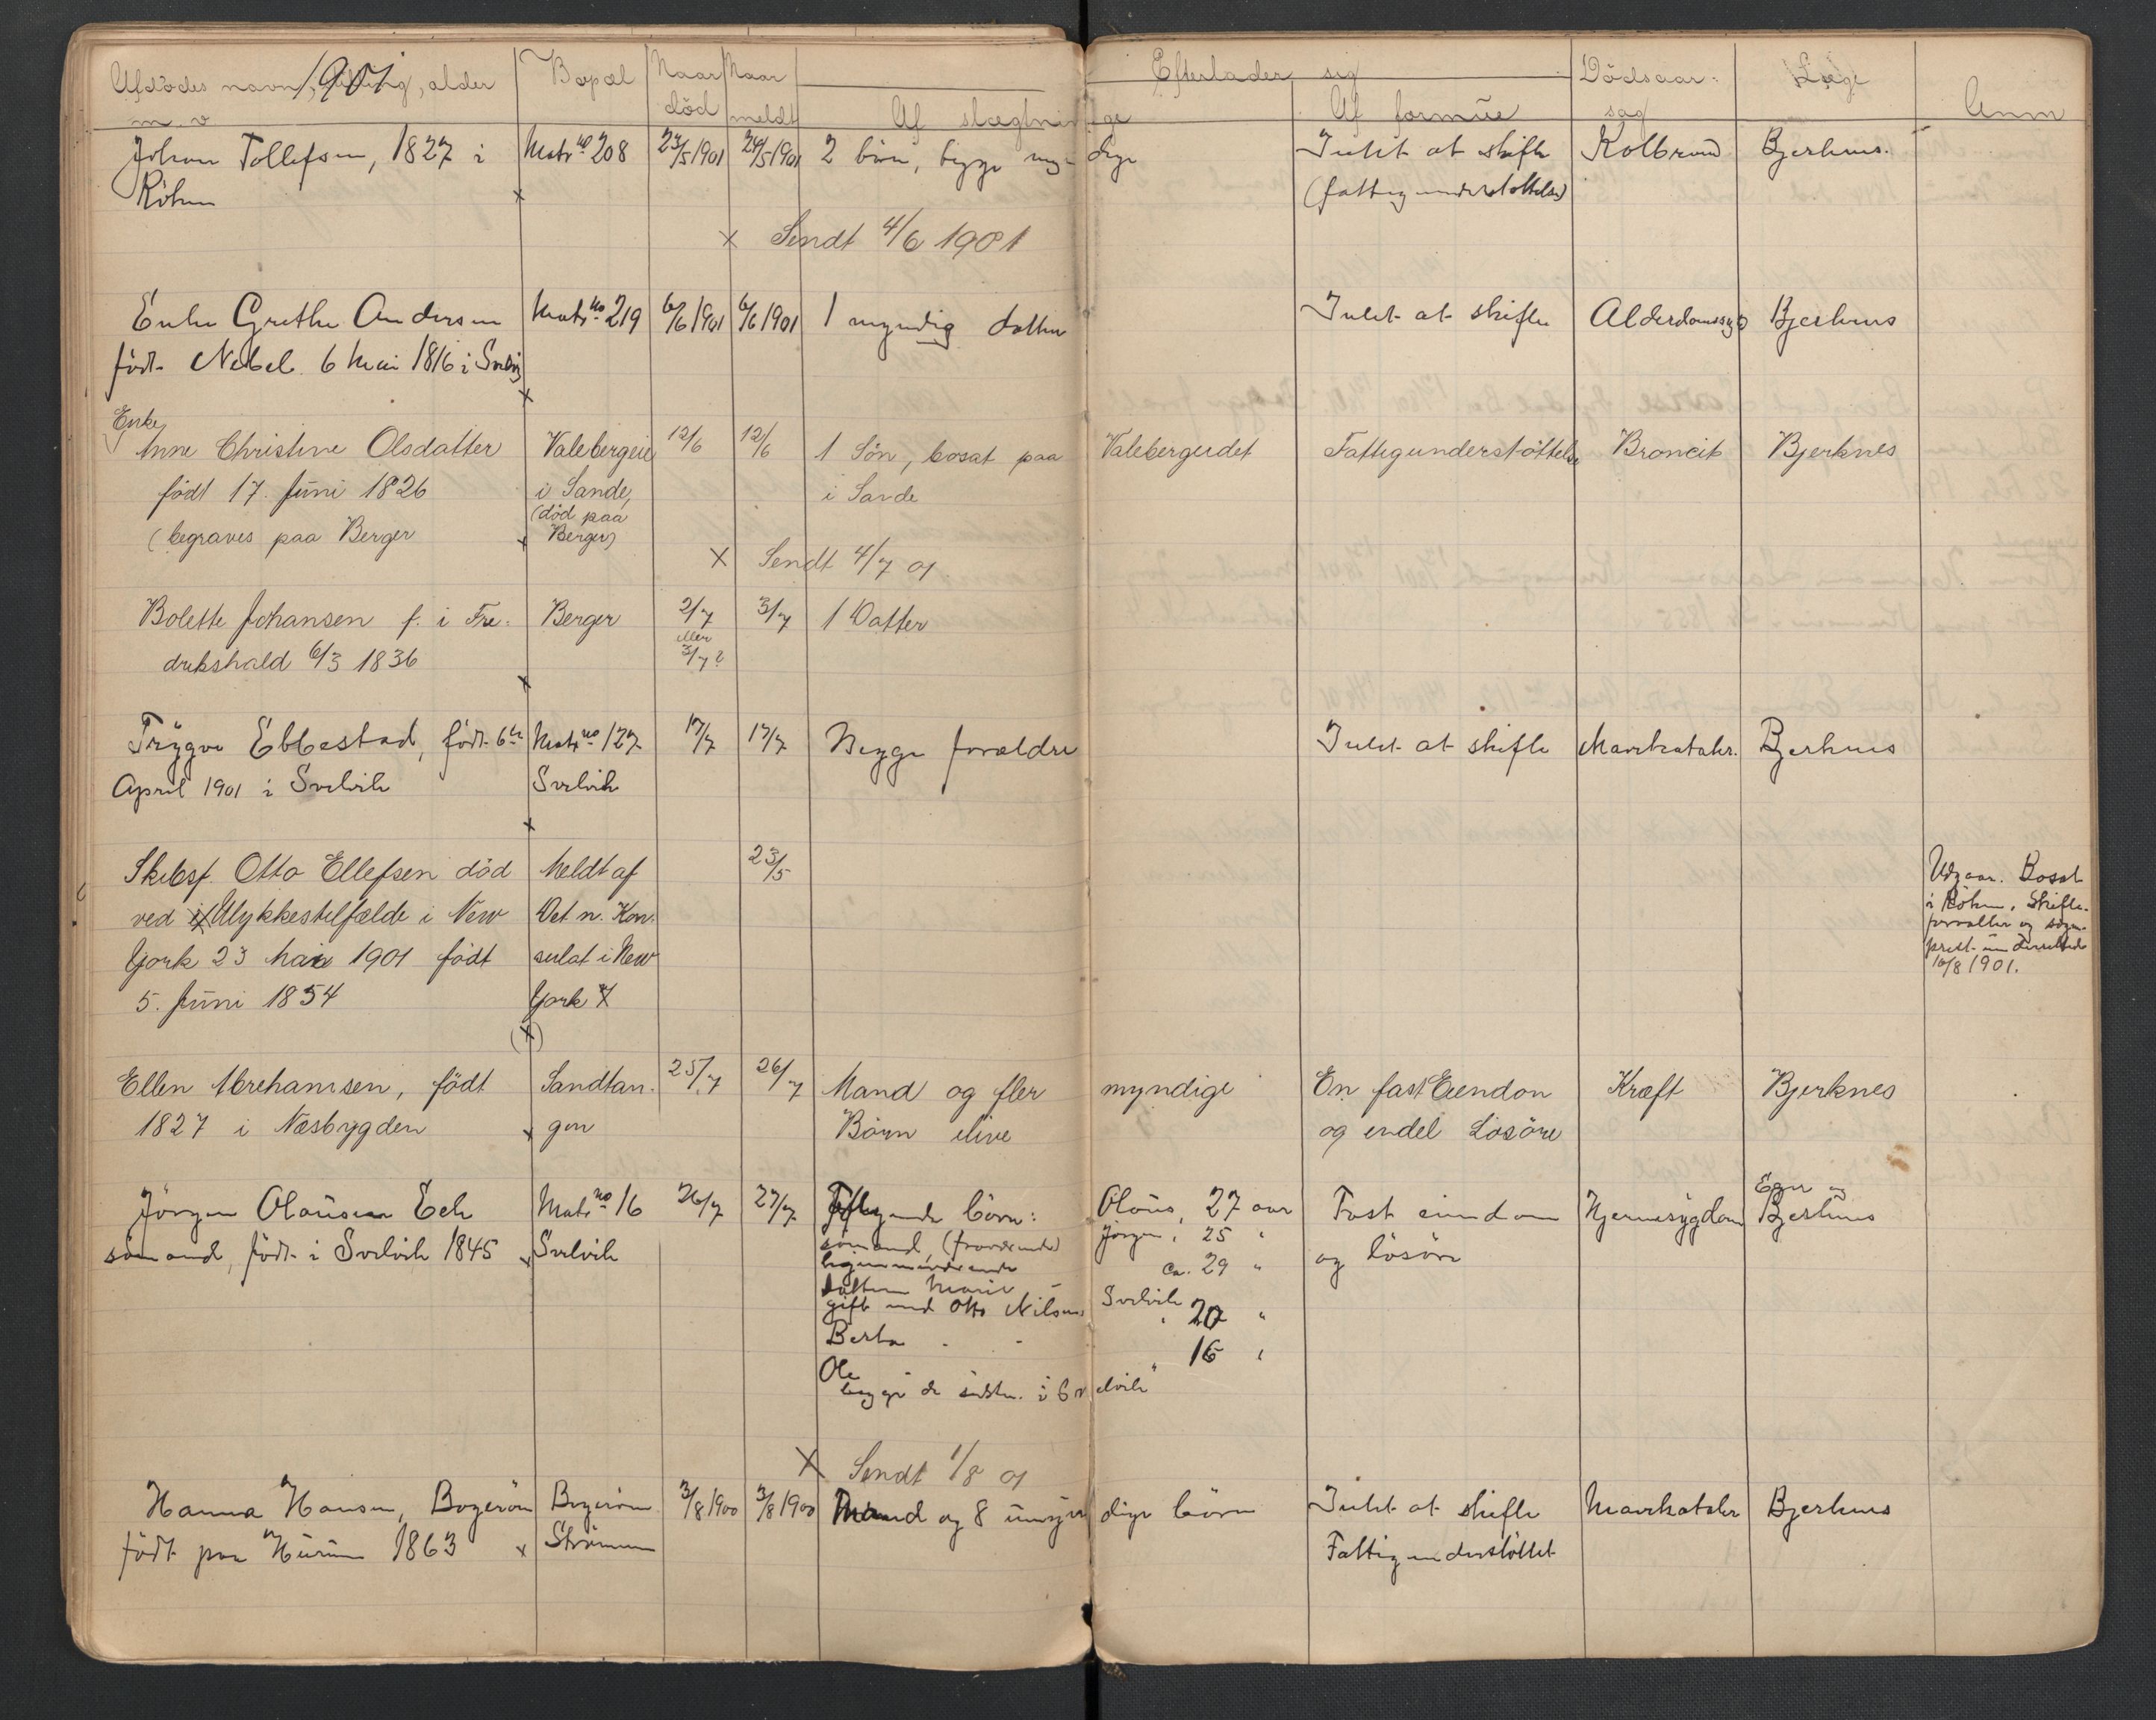 1901
Afdödes navn, stilling, alder m. v
Bopæl
Naar död
Naar meldt
Efterlader sig
Af slægtninge
Af formue
Dödsaarsag
Læge
Anm
Johan Tollefsen, 1827 i
Röken
Matr no 208
23/5 1901
24/5 1901
2 börn, begge myndige
Intet at skifte
(fattigunderstöttelse)
Kolbrand
Bjerknes.
x Sendt 4/6 1901
Enke Grethe Andersen
födt Nebel 6 mai 1816 i Svelvig
Matr no 219
6/6 1901
6/6 1901
1 myndig datter
Intet at skifte
Alderdomssyg
Bjerknes
Enke
Anne Christine Olsdatter
födt 17. Juni 1826
(begraves paa Berger
Valebergeie
i Sande,
(död paa
Berger)
12/6
12/6
1 Sön, bosat paa Valebergeidet
i Sande
Fattigunderstöttelse
Broncit
Bjerknes
x Sendt 4/7 01.
Bolette Johansen f. i Fre-
drikshald 6/3 1836
Berger
2/7
eller
3/7?
3/7
1 Datter
Trygve Ebbestad, födt 6te
April 1901 i Svelvik
Matr no 127
Svelvik
17/7
17/7
Begge forældre
Intet at skifte
Mavekatahr.
Bjerknes
Skibsf. Otto Ellefsen död
ved Ulykkestilfælde i New
York 23 mai 1901 födt
5. Juni 1854
Meldt af
Det n. Kon-
sulat i New
York
(x)
23/5
Udgaar. Bosat
i Röken. Skifte-
forvalter og sogne-
prest underrettede
10/8 1901.
Ellen Abrehamsen, födt
1827 i Næsbygden
Sandtan-
gen
25/7
26/7
Mand og fler myndige
Börn ilive
En fast Eiendom
og endel Lösöre
Kræft
Bjerknes
Jörgen Olausen Eek
sömand, födt i Svelvik 1845
Matr no 16
Svelvik
26/7
27/7
Fölgende börn: Olaus, 27 aar
sömand, (fraværende) Jörgen, 25 "
ligesaa
datteren Marie ca. 29 "
gift med Otto Nilsen Svelvik
Berta - - 20 "
Ole 16 "
begge de sidste i Svelvik
Fast eiendom
og lösöre
Hjernesygdom
Eger og
Bjerknes
x Sendt 1/8 01
Hanna Hansen, Bogerön
födt paa Hurum 1863
Bogeröen
Strömmen
3/8 1900
3/8 1900
Mand og 8 umyndige börn
Intet at skifte
Fattigunderstöttet
Mavekatahr
Bjerknes